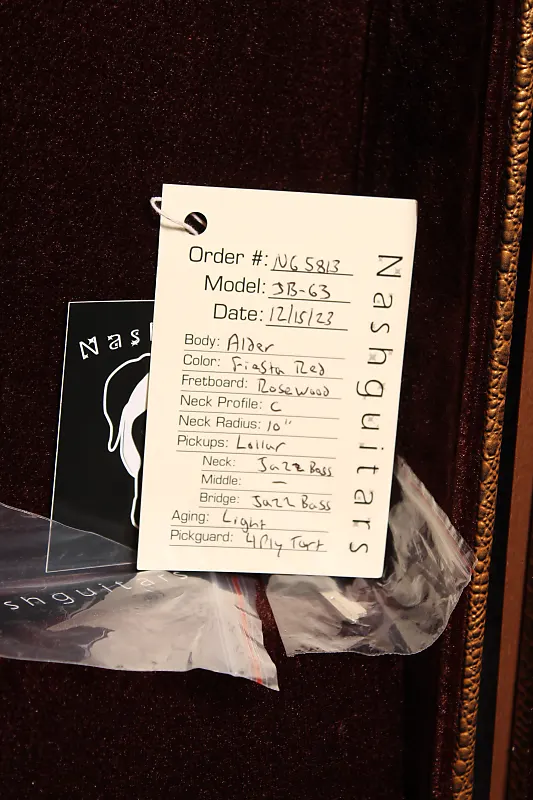 Order #: NG 5813
Model: JB-63
Date: 12/15/23
Body: Alder
Color: Fiesta Red
Fretboard: Rosewood
Neck Profile: C
Neck Radius: 10"
Pickups: Lollar
Neck: Jazz Bass
Middle: —
Bridge: Jazz Bass
Aging: Light
Pickguard: 4Ply Tort
Nashguitars
Nas
shguitars